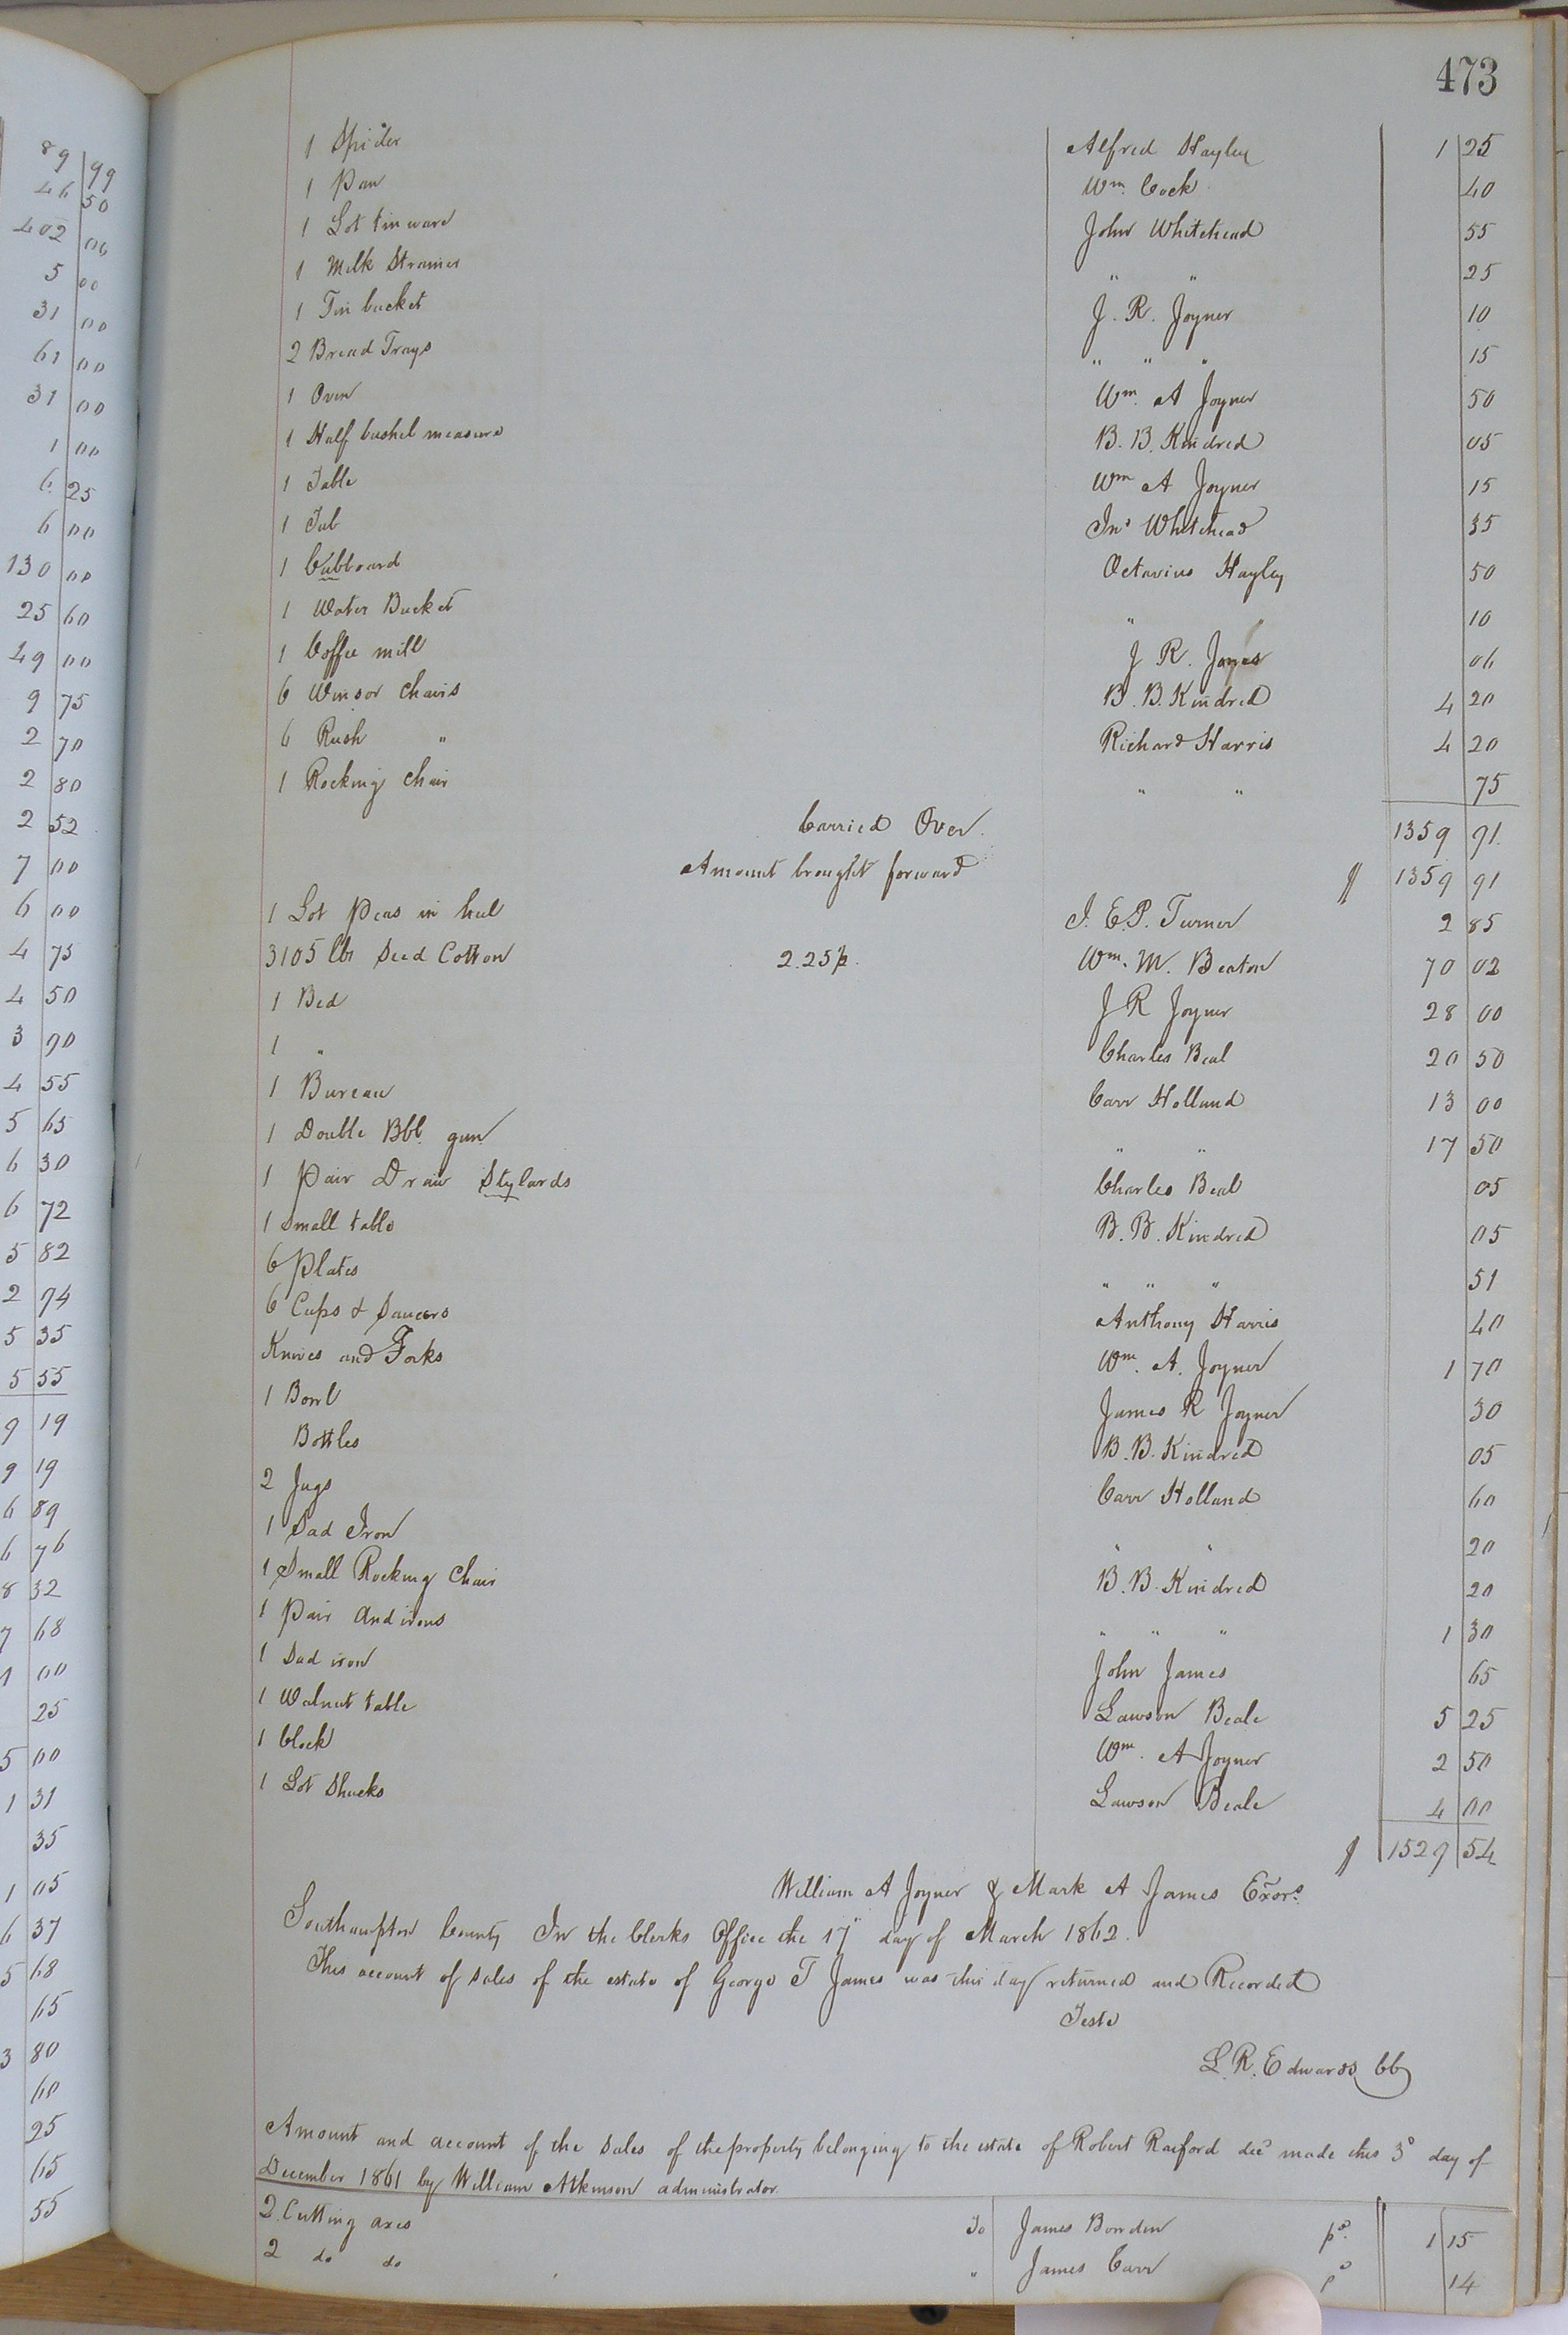 473
1 Spider Alfred Hayley 1 25
1 Pan Wm. Cock 40
1 Lot tin ware John Whitehead 55
1 Milk Strainer " " 25
1 Tin bucket J. R. Joyner 10
2 Bread Trays " " " 15
1 Oven Wm. A Joyner 50
1 Half bushel measure B. B. Kindred 05
1 Table Wm A Joyner 15
1 Tub Jno Whitehead 35
1 Cubboard Octavius Hayley 50
1 Water Bucket " 10
1 Coffee mill J R. James 06
6 Winsor chairs B. B. Kindred 4 20
6 Rush " Richard Harris 4 20
1 Rocking chair " " 75
Carried Over 1359 91
Amount brought forward $ 1359 91
1 Lot peas in hul J. E. P. Turner 2 85
3105 lbs Seed Cotton 2.25 p. Wm. M. Beaton 70 02
1 Bed J R Joyner 28 00
1 " Charles Beal 20 50
1 Bureau Carr Holland 13 00
1 Double Bbl. gun " " 17 50
1 pair Draw Stylards Charles Beal 05
1 small table B. B. Kindred 05
6 plates " " " 51
6 Cups & Saucers Anthony Harris 40
Knives and Forks Wm. A. Joyner 1 70
1 Bowl James R Joyner 30
Bottles B. B. Kindred 05
2 Jugs Carr Holland 60
1 Sad Iron " " 20
1 Small Rocking Chair B. B. Kindred 20
1 pair andirons " " " 1 30
1 Sad iron John James 65
1 Walnut table Lawson Beale 5 25
1 Clock Wm. A Joyner 2 50
1 Lot Shucks Lawson Beale 4 00
$ 1529 54
William A Joyner & Mark A James Exors.
Southampton County In the Clerks Office the 17" day of March 1862.
This account of sales of the estate of George T James was this day returned and Recorded
Teste
L. R. Edwards CC
Amount and account of the sales of the property belonging to the estate of Robert Raiford decd made this 3d day of
December 1861 by William Atkinson administrator.
2 Cutting axes To James Bowden pd. 1 15
2 do do " James Carr pd 14
89 99
46 50
402 00
5 00
31 00
61 00
31 00
1 00
6 25
6 00
130 00
25 60
49 00
9 75
2 70
2 80
2 52
7 00
6 00
4 75
4 50
3 90
4 55
5 65
6 30
6 72
5 82
2 74
5 35
5 55
9 19
9 19
6 89
6 76
8 32
7 68
00
25
5 00
1 31
35
1 05
6 37
5 68
65
3 80
60
25
65
55